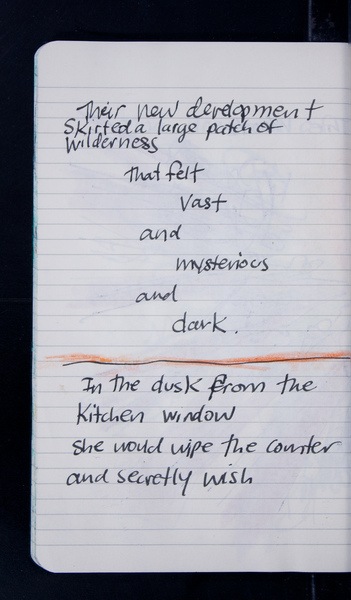 Their new development
skirted a large patch of
wilderness
that felt
vast
and
mysterious
and
dark.
In the dusk from the
kitchen window
she would wipe the counter
and secretly wish